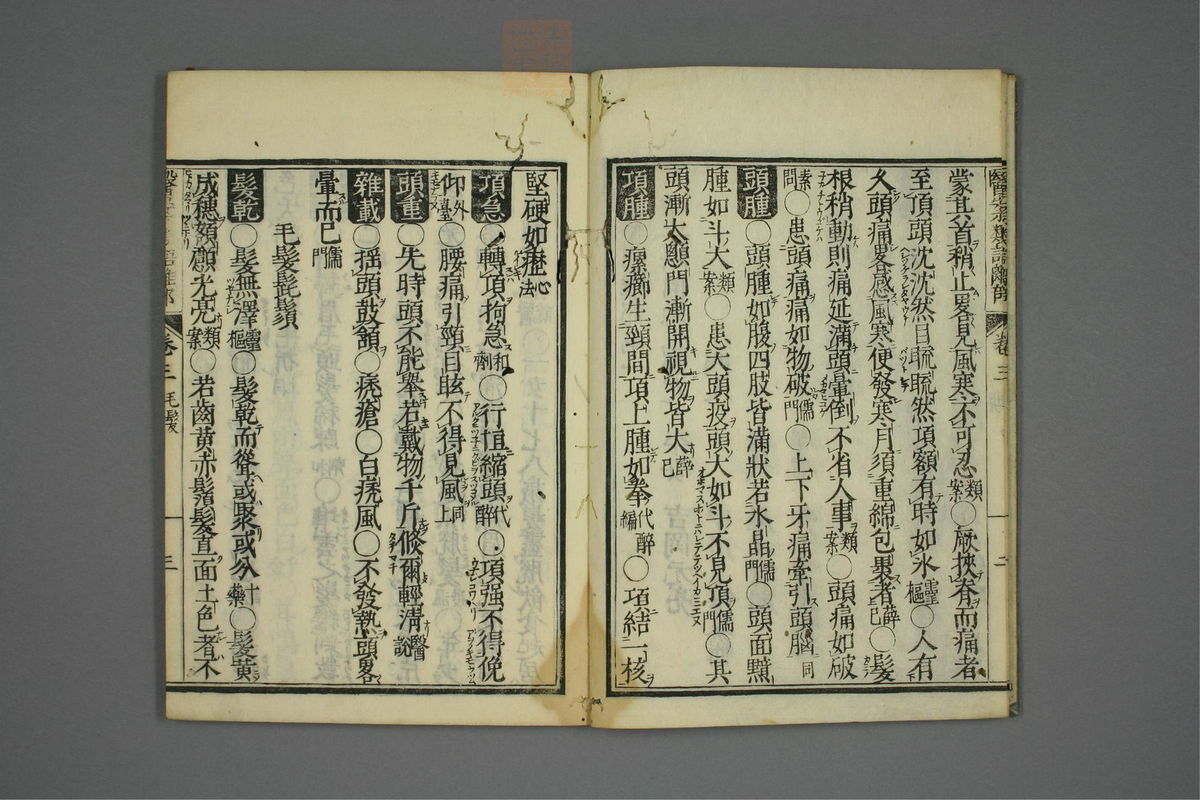 蒙其首稍止畧見風寒不可忍類案〇厥挾脊而痛者
至頂頭沈沈然目䀮䀮然項額有時如氷靈樞〇人有
久頭痛畧感風寒便發寒月須重綿包裹者薛己〇髮
根稍動則痛延滿頭暈倒不省人事類案〇頭痛如破
素問〇患頭痛痛如物破儒門〇上下牙痛牽引頭腦同
頭腫〇頭腫如腹四肢皆滿狀若水晶儒門〇頭面黯
腫如斗大類案〇患大頭疫頭大如斗不見項儒門〇其
頭漸大顖門漸開視物皆大薛己
項腫〇瘰癧生頸間項上腫如拳代醉編〇項結一核
堅硬如癧心法
項急〇轉項拘急和劑〇行恒縮頭代醉〇項强不得俛
仰外臺〇腰痛引頸目眩不得見風同上
頭重〇先時頭不能舉若戴物千斤倏爾輕淸醫說
雜載〇揺頭鼓頷〇痝瘡〇白痝風〇不發熱頭畧
暈而已儒門
毛髮髭鬚
髮乾〇髮無澤靈樞〇髮乾而聳或聚或分十藥〇髮黃
成穗頦顱光亮類案〇若齒黃赤鬚髮直面土色者不
卷三 毛髮
三